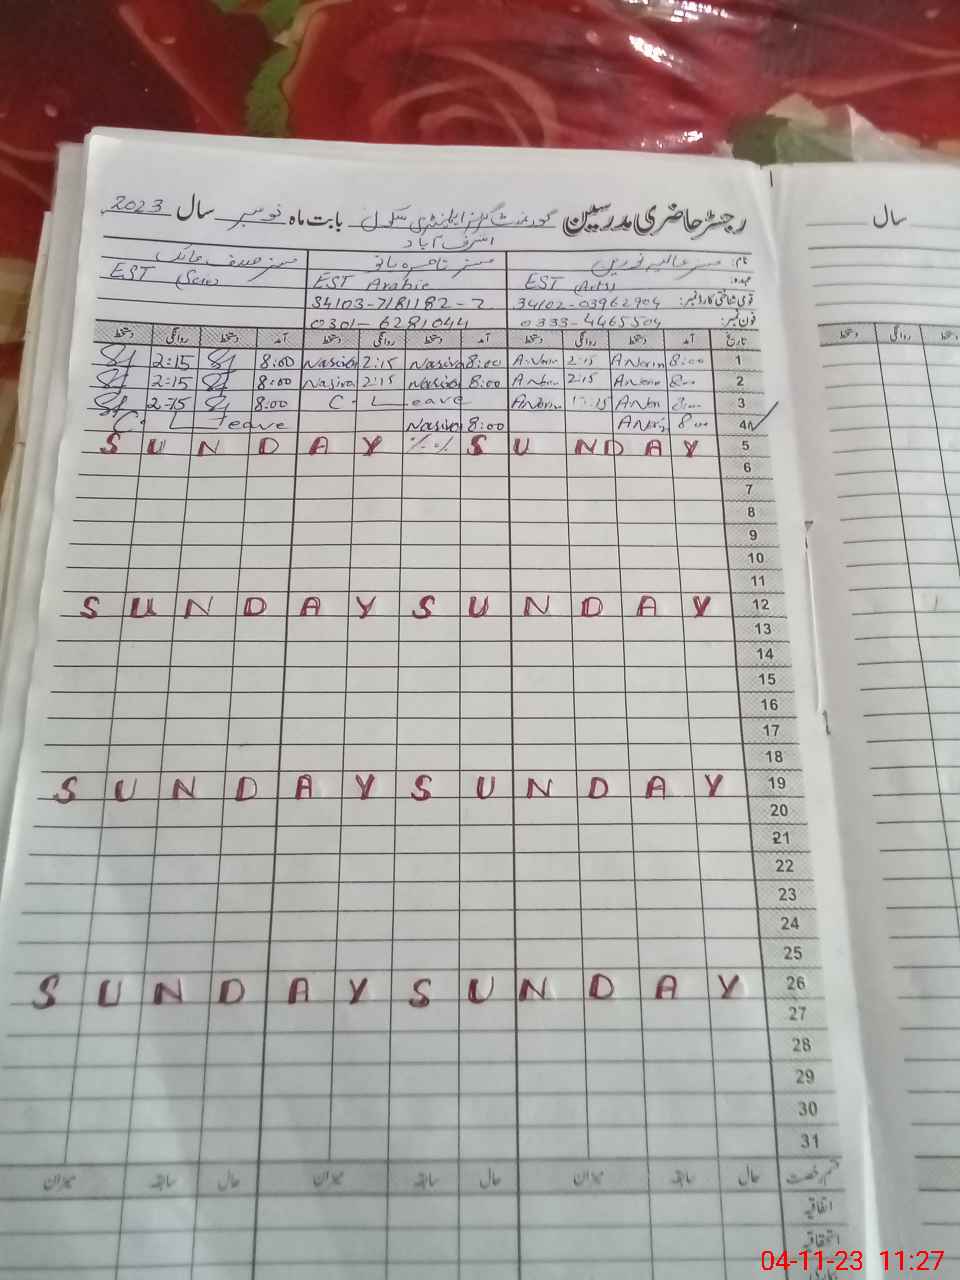 رجسٹر حاضری مدرسین گورنمنٹ گرلز ایلیمنٹری سکول بابت ماہ نومبر سال 2023
اشرف آباد
نام: مسز عالیہ نورین مسز ناصرہ بانو مسز
عہدہ: EST (Arts) EST Arabic EST
قومی شناختی کارڈ نمبر: 34102-03962904 34103-7181182-2
فون نمبر: 0333-4465504 0301-6281044
تاریخ آمد دستخط روانگی دستخط آمد دستخط روانگی دستخط آمد دستخط روانگی دستخط
1 8:00 ANorin 2:15 ANorin 8:00 Nasira 2:15 Nasira 8:00 2:15
2 8:00 ANorin 2:15 ANorin 8:00 Nasira 2:15 Nasira 8:00 2:15
3 8:00 ANorin ANorin C. Leave 8:00 2:15
4 8:00 ANorin 8:00 Nasira C. Leave
5 SUNDAY SUNDAY
6
7
8
9
10
11
12 SUNDAY SUNDAY
13
14
15
16
17
18
19 SUNDAY SUNDAY
20
21
22
23
24
25
26 SUNDAY SUNDAY
27
28
29
30
31
قسم رخصت حال سابقہ میزان حال سابقہ میزان حال سابقہ میزان
اتفاقیہ
استحقاقیہ
سال
دستخط روانگی دستخط
04-11-23 11:27